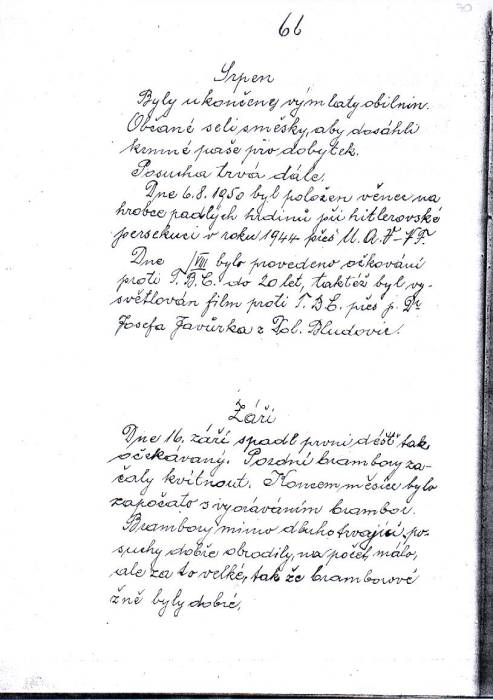 70
66
Srpen
Byly ukončeny výmlaty obilnin.
Občané seli směsky, aby dosáhli
krmné paše pro dobytek.
Posucha trvá dále.
Dne 6.8. 1950 byl položen věnec na
hrobce padlých hrdinů při hitlerovské
persekuci v roku 1944 přes U.A.V-VF.
Dne /VIII bylo provedeno očkování
proti T.B.C. do 20 let, taktéž byl vy-
světlován film proti T.B.C. přes p. Dr
Josefa Javůrka z Dol. Bludovic.
Září
Dne 16. září spadl první déšť tak
očekávaný. Pozdní brambory za-
čaly kvitnout. Koncem měsíce bylo
započato s vyoráváním brambor.
Brambory mimo dluho trvající po-
suchy dobře obrodily, na počet málo,
ale za to velké, tak že bramborové
žně byly dobré.